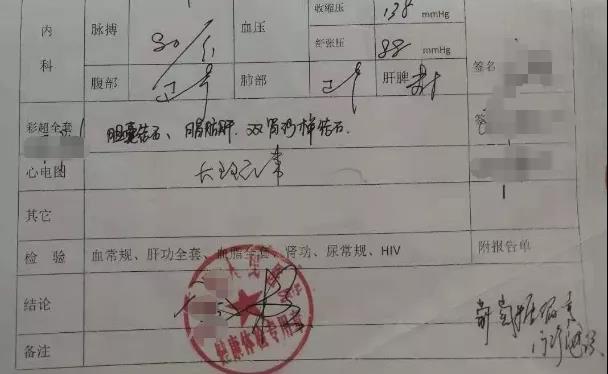 内科 脉搏 80/分 血压 收缩压 138 mmHg
舒张压 88 mmHg
腹部 正常 肺部 正常 肝脾 签名
彩超全套 胆囊结石、脂肪肝、双肾砂样结石
心电图 大致正常
其它
检 验 血常规、肝功全套、血脂全套、肾功、尿常规、HIV 附报告单
结论
健康体检专用章
备注